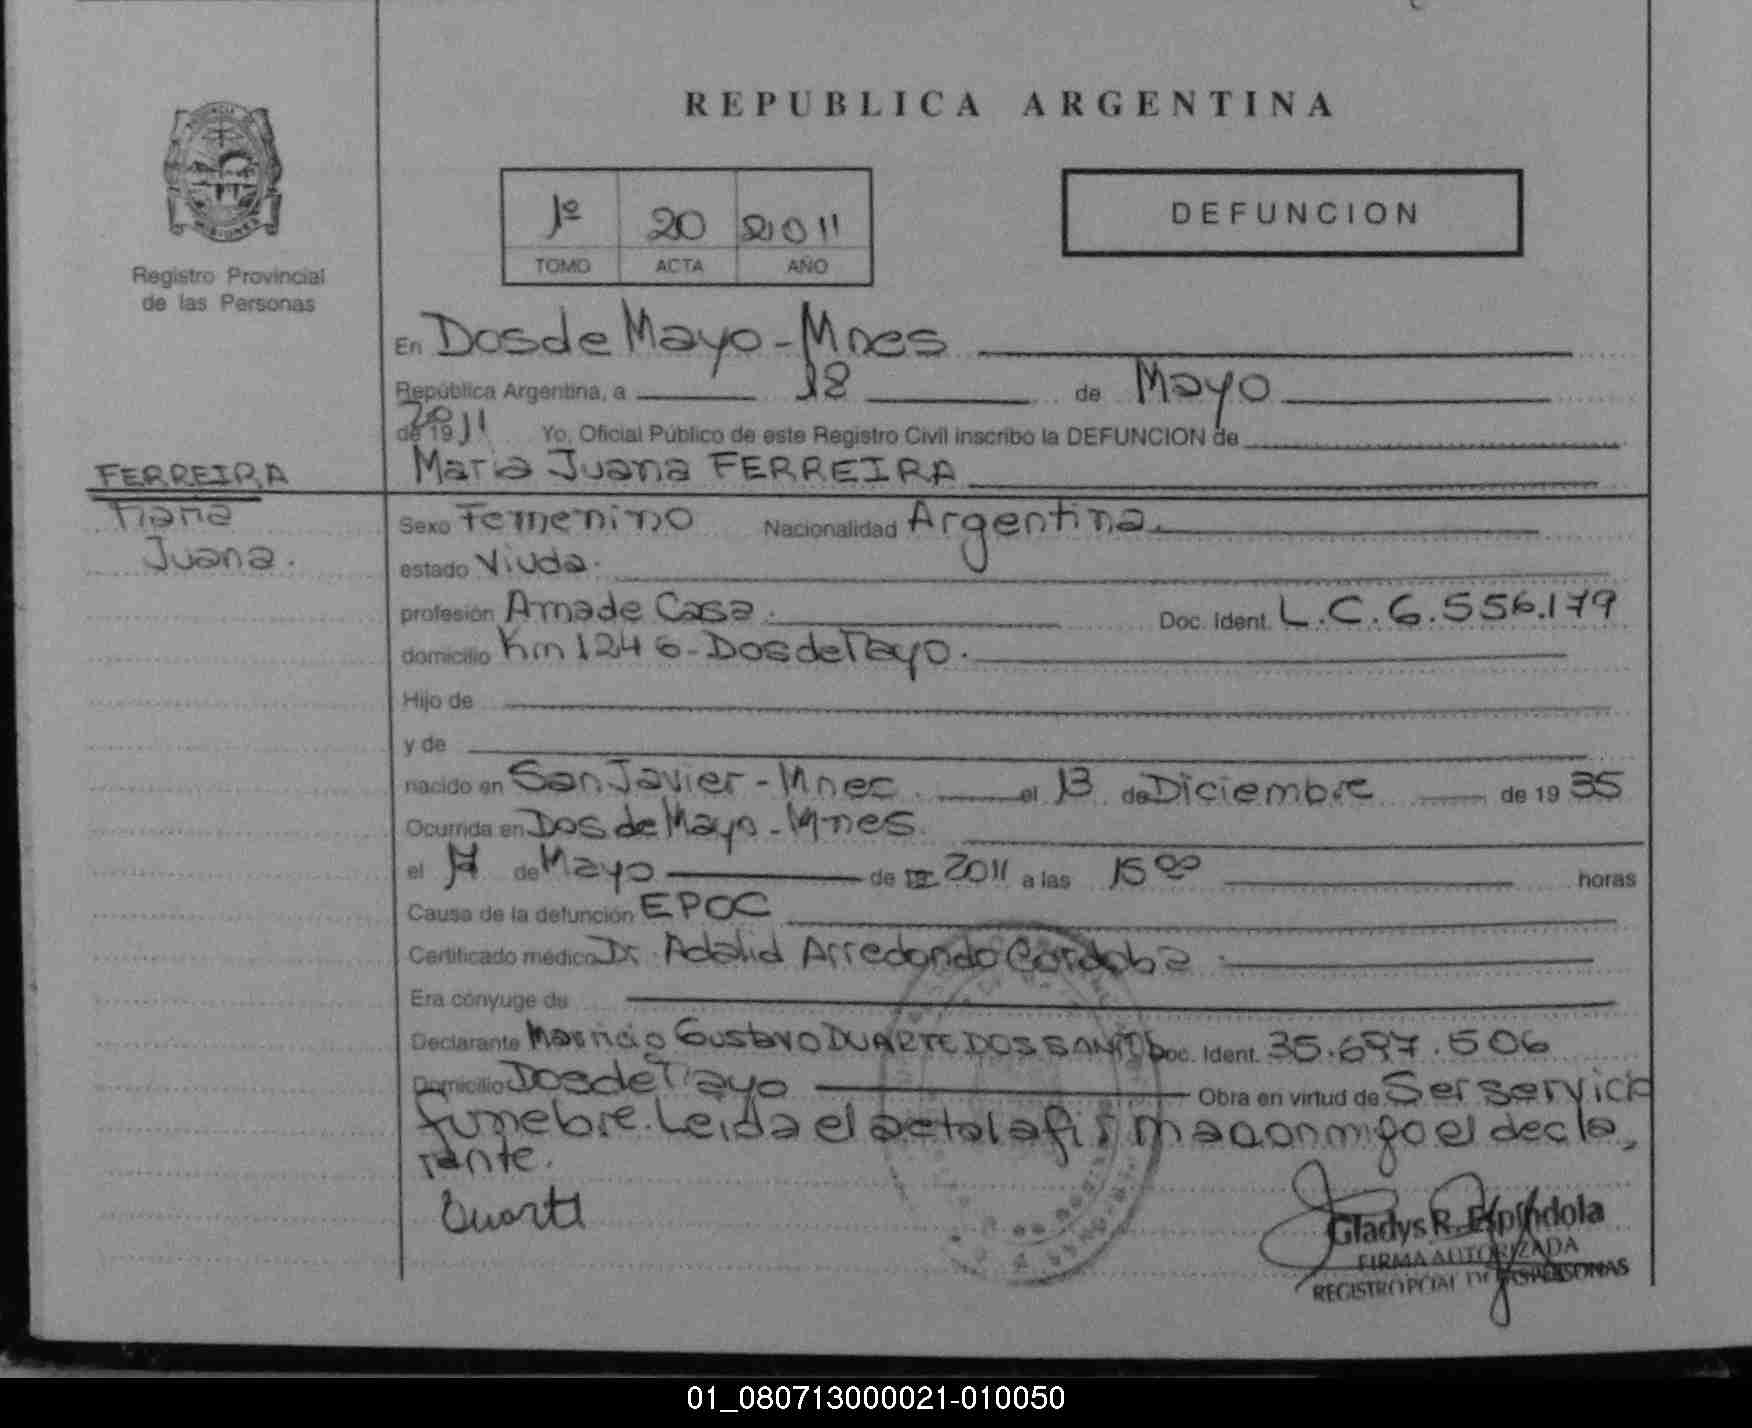 REPUBLICA ARGENTINA
Jº 20 2011
DEFUNCION
TOMO ACTA AÑO
Registro Provincial
de las Personas
En Dos de Mayo - Mnes
República Argentina, a 18 de Mayo
de 19 2011 Yo, Oficial Público de este Registro Civil inscribo la DEFUNCION de
FERREIRA
Maria Juana FERREIRA
Maria
Juana.
Sexo Femenino Nacionalidad Argentina.
estado Viuda.
profesión Ama de Casa. Doc. Ident. L.C. 6.556.179
domicilio Km 1246 - Dos de Mayo.
Hijo de
y de
nacido en San Javier - Mnes. el 13 de Diciembre de 19 35
Ocurrida en Dos de Mayo - Mnes.
el 17 de Mayo de 2011 a las 15 00 horas
Causa de la defunción EPOC
Certificado médico Dr. Adalid Arredondo Cordoba.
Era cónyuge de
Declarante Mauricio Gustavo DUARTE DOS SANTOS Doc. Ident. 35.697.506
Domicilio Dos de Mayo Obra en virtud de Ser servicio
funebre. Leida el acta la firma conmigo el decla
rante.
Duarte
Gladys R. Espíndola
FIRMA AUTORIZADA
REGISTRO PCIAL DE LAS PERSONAS
01_080713000021-010050